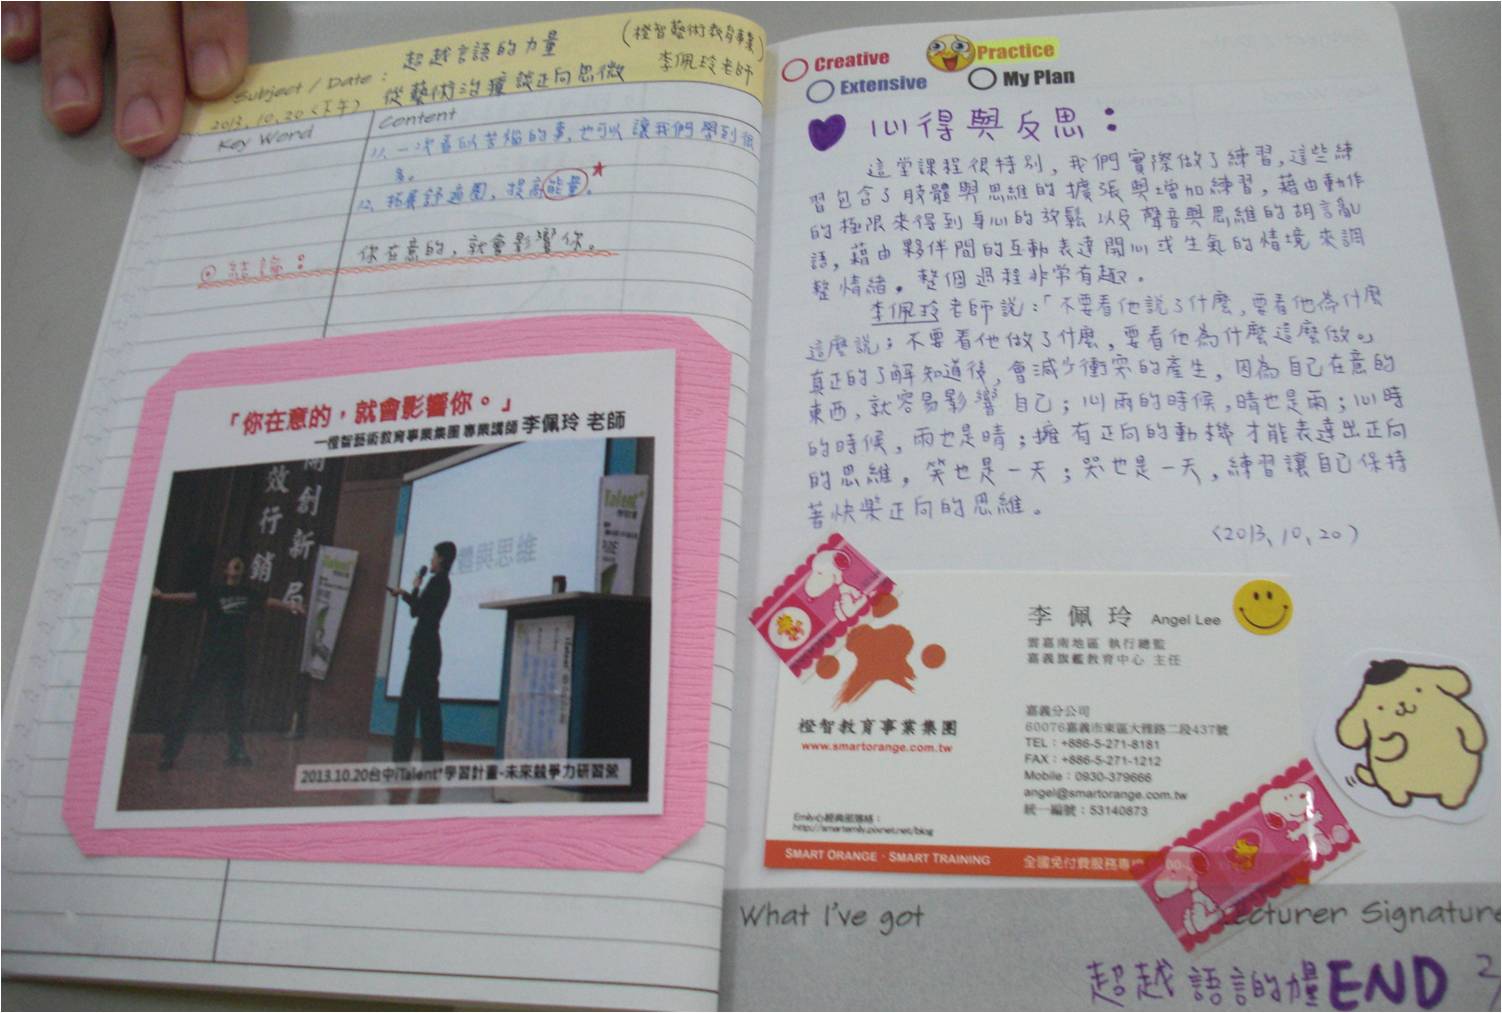 超越言語的力量
(橙智藝術教育事業)
Subject / Date :
從藝術治療談正向思微
李佩玲老師
2013.10.20(下午)
Key Word
Content
11、一次看似苦惱的事,也可以讓我們學到很
多。
12、拓展舒適圈,提高能量。
結論:
你在意的,就會影響你。
「你在意的,就會影響你。」
—橙智藝術教育事業集團 專業講師 李佩玲 老師
創新局
效行銷
iTalent
體與思維
2013.10.20台中iTalent+學習計畫-未來競爭力研習營
Creative
Practice
Extensive
My Plan
心得與反思:
這堂課程很特別,我們實際做了練習,這些練
習包含了肢體與思維的擴張與增加練習,藉由動作
的極限來得到身心的放鬆以及聲音與思維的胡言亂
語,藉由夥伴間的互動表達開心或生氣的情境來調
整情緒。整個過程非常有趣。
李佩玲老師說:「不要看他說了什麼,要看他為什麼
這麼說;不要看他做了什麼,要看他為什麼這麼做。」
真正的了解知道後,會減少衝突的產生,因為自己在意的
東西,就容易影響自己;心雨的時候,晴也是雨;心晴
的時候,雨也是晴;擁有正向的動機才能表達出正向
的思維,笑也是一天;哭也是一天,練習讓自己保持
著快樂正向的思維。
(2013、10、20)
李佩玲 Angel Lee
雲嘉南地區 執行總監
嘉義旗艦教育中心 主任
橙智教育事業集團
www.smartorange.com.tw
嘉義分公司
60076嘉義市東區大雅路二段437號
TEL:+886-5-271-8181
FAX:+886-5-271-1212
Mobile:0930-379666
angel@smartorange.com.tw
統一編號:53140873
http://smartemily.pixnet.net/blog
SMART ORANGE · SMART TRAINING
全國免付費服務專
What I've got
Lecturer Signature
超越語言的力量END